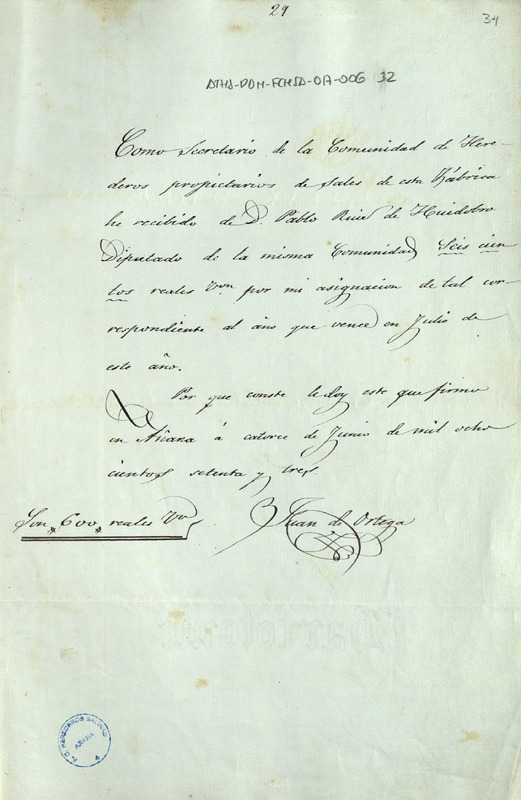 29
34
ATHA-DOM-FCHSA-OA-006 32
Como Secretario de la Comunidad de Here-
deros propietarios de Sales de esta Fábrica
he recibido de D. Pablo Ruiz de Huidobro
Diputado de la misma Comunidad Seis cien
tos reales Von por mi asignacion de tal cor-
respondiente al año que vence en Julio de
este año.
Por que conste le doy este que firmo
en Añana á catorce de Junio de mil ocho
cientos setenta y tres
Son "600" reales Von
Juan de Ortega
HEREDEROS SALINAS
AÑANA